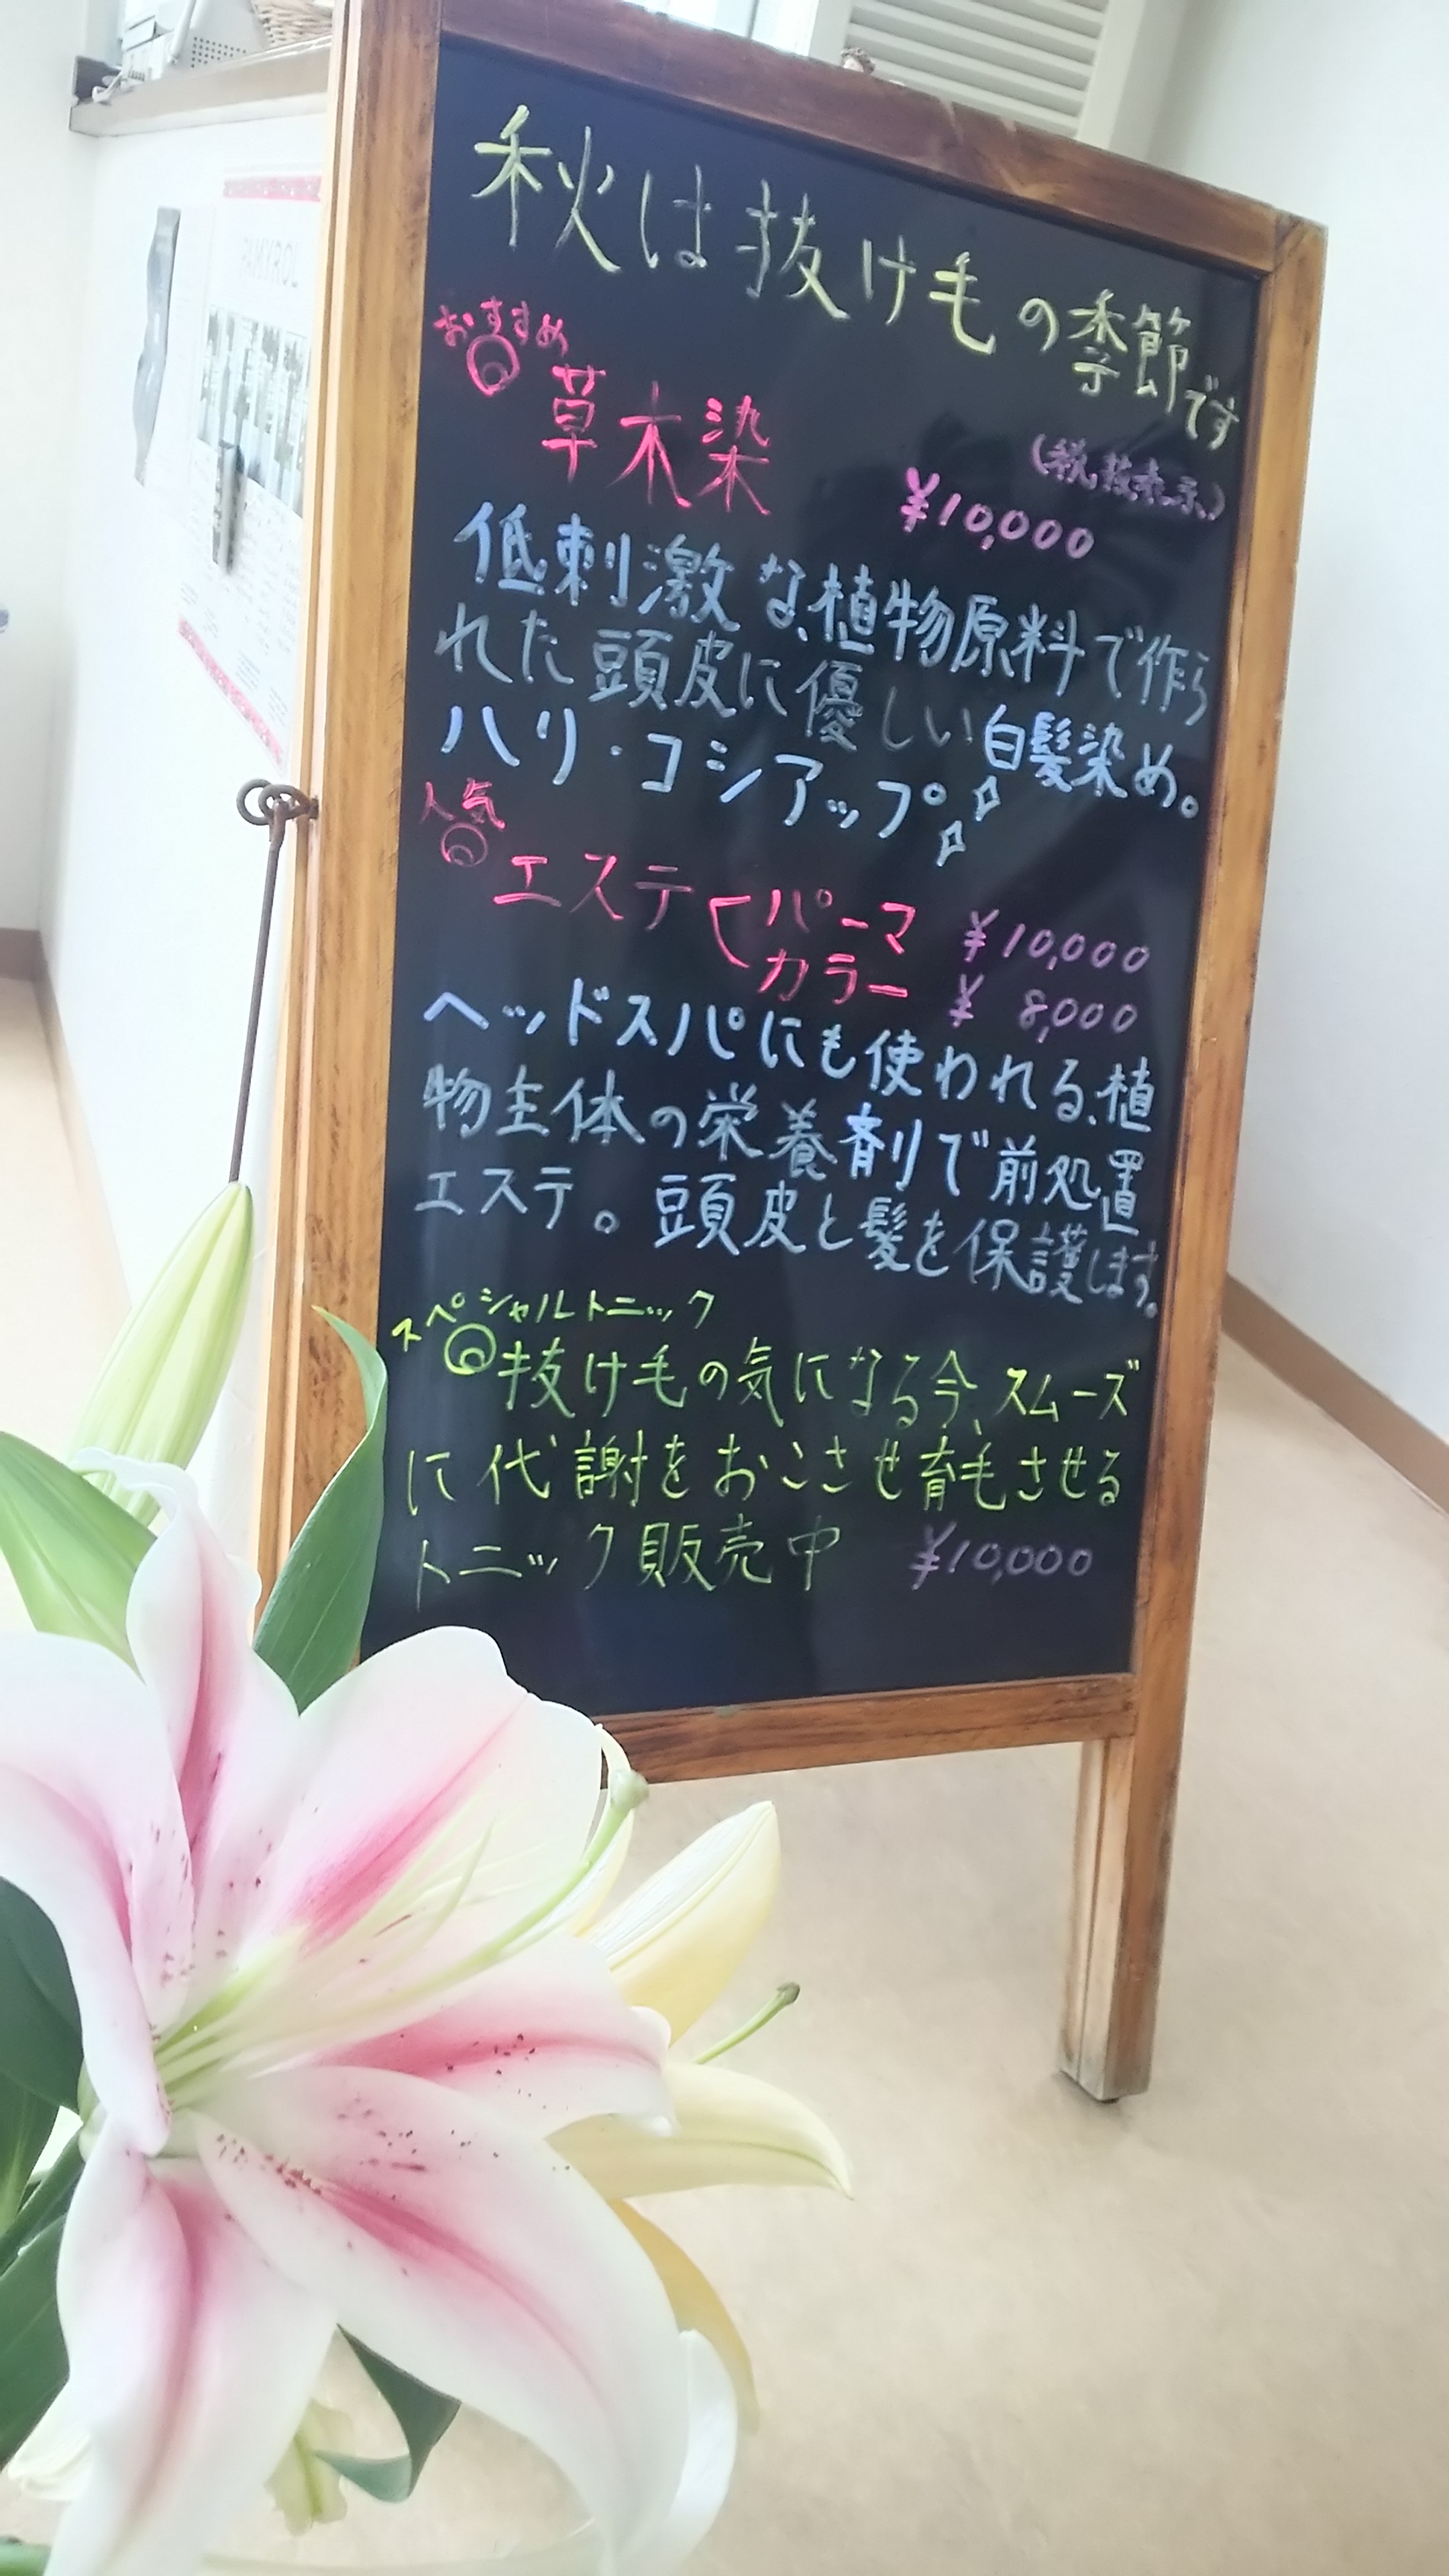 秋は抜け毛の季節です
おすすめ
草木染
(税抜表示)
¥10,000
低刺激な、植物原料で作ら
れた頭皮に優しい白髪染め。
ハリ・コシアップ
人気
エステ パーマ ¥10,000
カラー ¥8,000
ヘッドスパにも使われる、植
物主体の栄養剤で前処置
エステ。頭皮と髪を保護します。
スペシャルトニック
抜け毛の気になる今、スムーズ
に代謝をおこさせ育毛させる
トニック販売中 ¥10,000